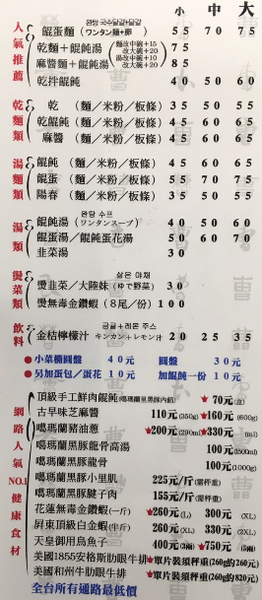 小 中 大
人氣推薦
완탕 국수달걀+달걀
餛蛋麵(ワンタン麺+卵) 55 70 75
乾麵+餛飩湯 麵改中碗+15 改大碗+20 75
麻醬麵+餛飩湯 湯改中碗+10 改大碗+20 85
乾拌餛飩 40 50 60
乾麵類
乾(麵/米粉/板條) 35 50 55
乾餛飩(麵/米粉/板條) 45 60 65
麻醬(麵/米粉/板條) 45 60 65
湯麵類
餛飩(麵/米粉/板條) 45 60 65
餛蛋(麵/米粉/板條) 55 70 75
陽春(麵/米粉/板條) 35 50 55
湯類
완탕 수프
餛飩湯(ワンタンスープ) 40 50 60
餛蛋湯/餛飩蛋花湯 50 60 70
韭菜湯 30
燙菜類
삶은 야채
燙韭菜/大陸妹(ゆで野菜) 30
燙無毒金鑽蝦(8尾/份) 100
飲料
금귤+레몬 주스
金桔檸檬汁 キンカン+レモン汁 20 25 35
●小菜橢圓盤 40元 圓盤 30元
●另加蛋包/蛋花 10元 加餛飩一份 10元
網路人氣NO.1健康食材
頂級手工鮮肉餛飩(噶瑪蘭黑豚內餡) ★70元
古早味芝麻醬 110元(350g) ★160元(600g)
噶瑪蘭豬油蔥 ★200元(290ml) ★330元
噶瑪蘭黑豚龍骨高湯 100元
噶瑪蘭黑豚龍骨 100元(1000g)
噶瑪蘭黑豚小里肌 225元/斤(需秤重)
噶瑪蘭黑豚腱子肉 155元/斤(需秤重)
花蓮無毒金鑽蝦(一斤) ★260元(L) 300元(XL)
屏東頂級白金蝦(半斤) ★260元(XL) 330元(2XL)
天皇御用烏魚子 400元 ★750元
美國1855安格斯肋眼牛排★單片裝須秤重(260g約260元)
美國和州牛肋眼牛排★單片裝須秤重(260g約820元)
全台所有通路最低價